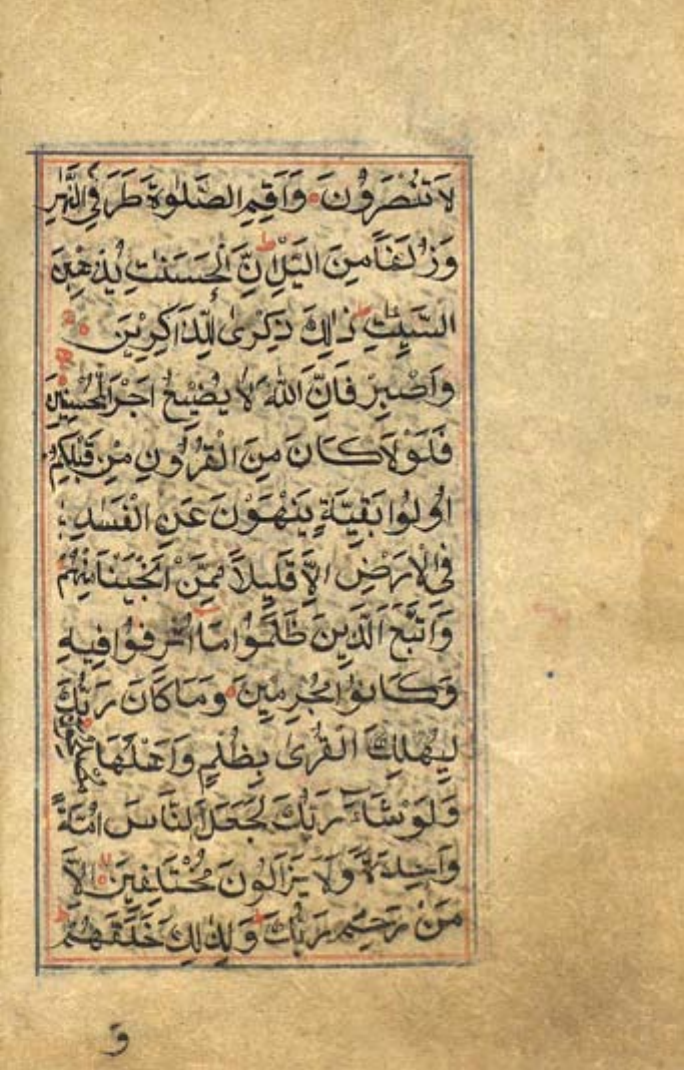 لَا تُنْصَرُونَ وَاَقِمِ الصَّلٰوةَ طَرَفَيِ النَّهَارِ
وَزُلَفًا مِنَ الَّيْلِ اِنَّ الْحَسَنٰتِ يُذْهِبْنَ
السَّيِّئٰتِ ذٰلِكَ ذِكْرٰى لِلذَّاكِرِيْنَ
وَاصْبِرْ فَاِنَّ اللّٰهَ لَا يُضِيْعُ اَجْرَ الْمُحْسِنِيْنَ
فَلَوْلَا كَانَ مِنَ الْقُرُوْنِ مِنْ قَبْلِكُمْ
اُولُوْا بَقِيَّةٍ يَنْهَوْنَ عَنِ الْفَسَادِ
فِى الْاَرْضِ اِلَّا قَلِيْلًا مِمَّنْ اَنْجَيْنَا مِنْهُمْ
وَاتَّبَعَ الَّذِيْنَ ظَلَمُوْا مَا اُتْرِفُوْا فِيْهِ
وَكَانُوْا مُجْرِمِيْنَ وَمَا كَانَ رَبُّكَ
لِيُهْلِكَ الْقُرٰى بِظُلْمٍ وَاَهْلُهَا مُصْلِحُوْنَ
وَلَوْ شَآءَ رَبُّكَ لَجَعَلَ النَّاسَ اُمَّةً
وَاحِدَةً وَلَا يَزَالُوْنَ مُخْتَلِفِيْنَ اِلَّا
مَنْ رَحِمَ رَبُّكَ وَلِذٰلِكَ خَلَقَهُمْ
وَ